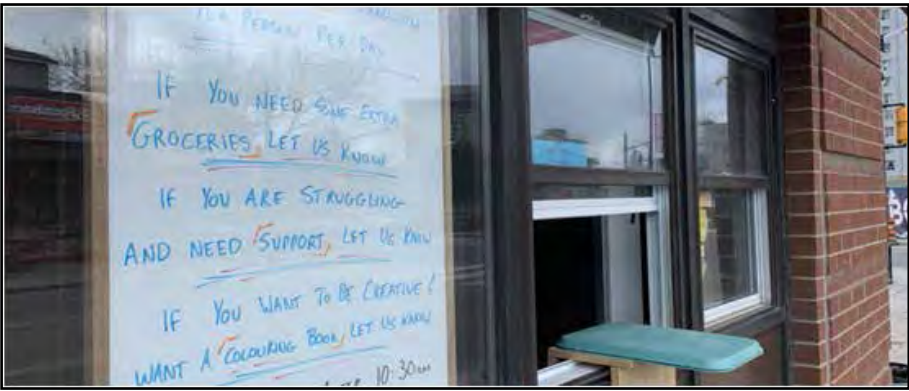 PER PERSON PER DAY
IF YOU NEED SOME EXTRA
GROCERIES, LET US KNOW
IF YOU ARE STRUGGLING
AND NEED SUPPORT, LET US KNOW
IF YOU WANT TO BE CREATIVE &
WANT A COLOURING BOOK, LET US KNOW
10:30am